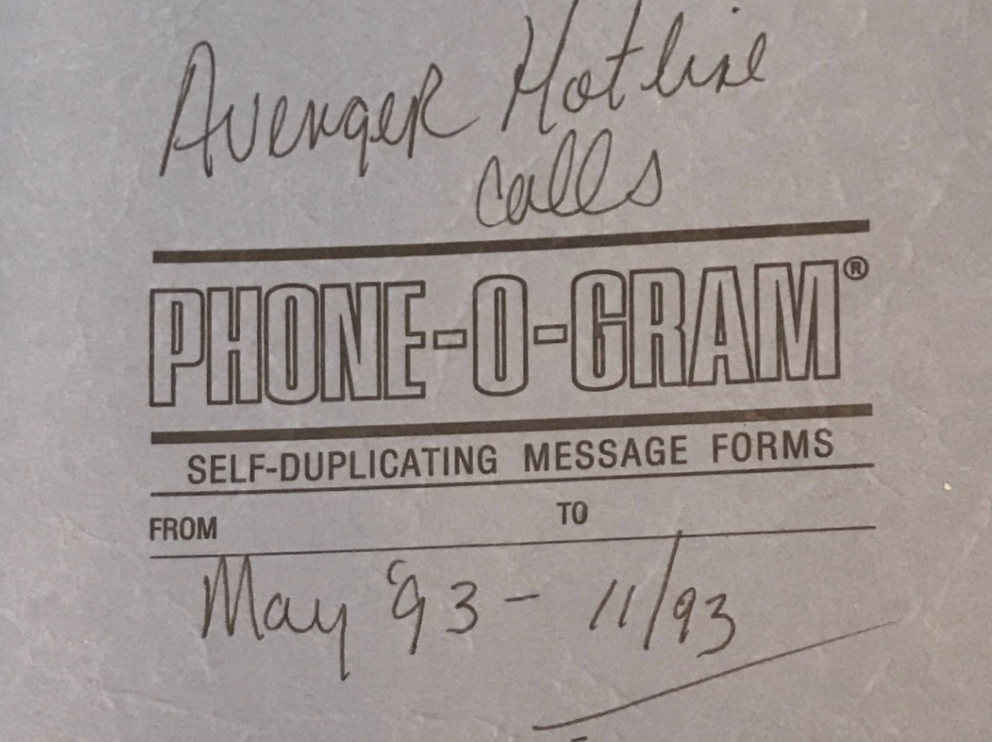 Avenger Hotline
Calls
PHONE-O-GRAM®
SELF-DUPLICATING MESSAGE FORMS
FROM TO
May '93 - 11/93